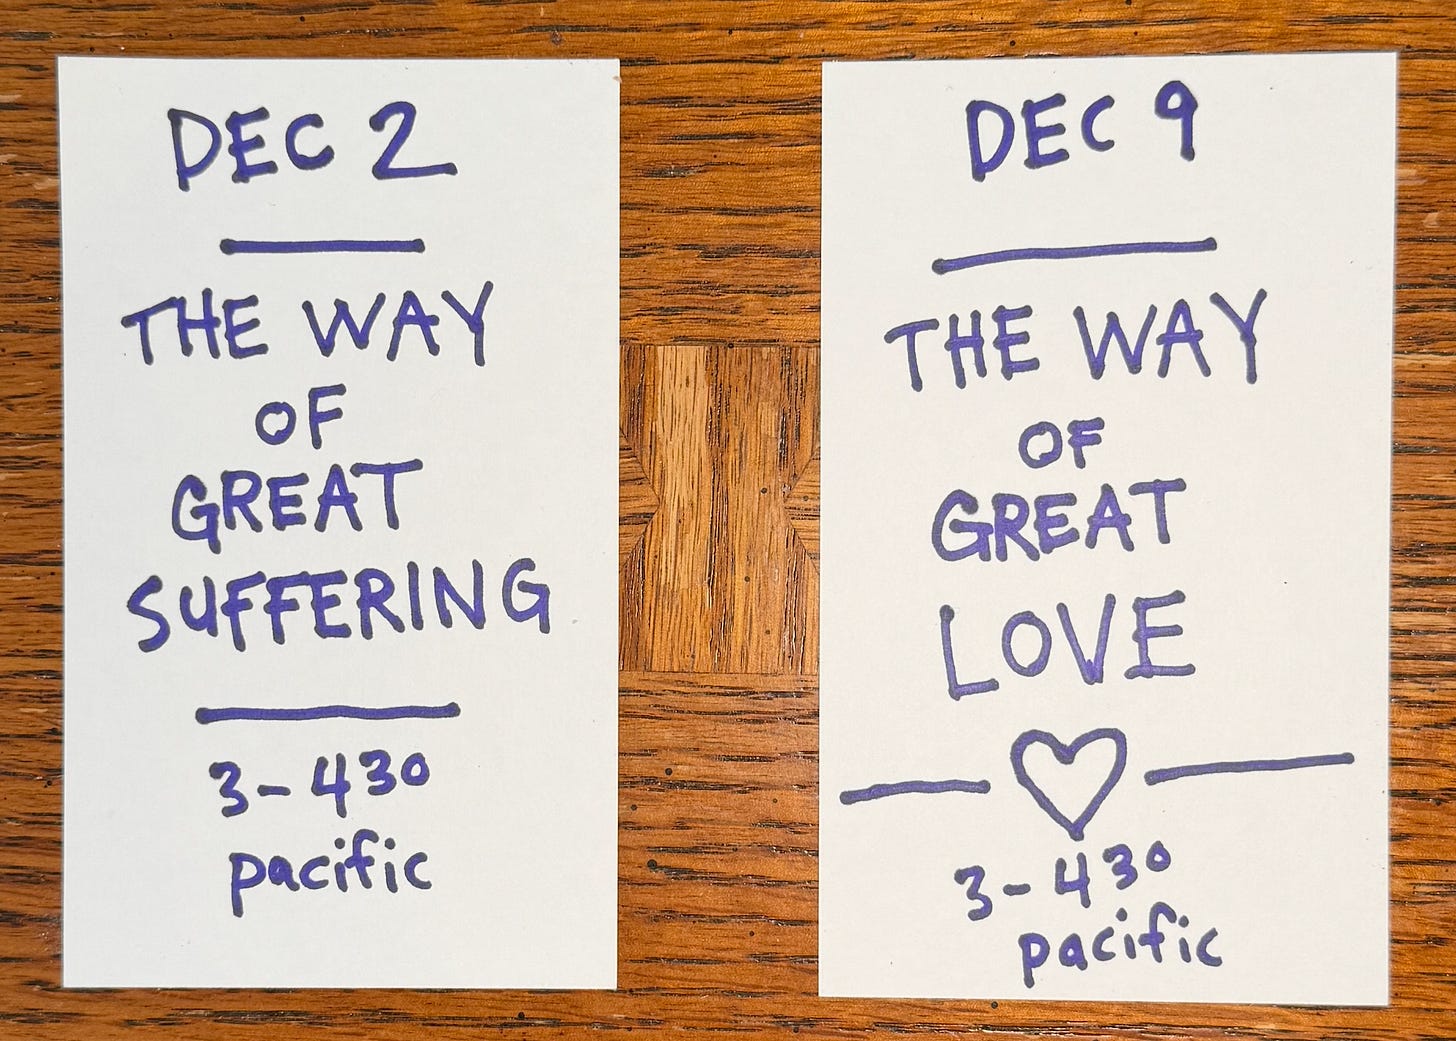 DEC 2
THE WAY
OF
GREAT
SUFFERING
3-430
pacific
DEC 9
THE WAY
OF
GREAT
LOVE
3-430
pacific